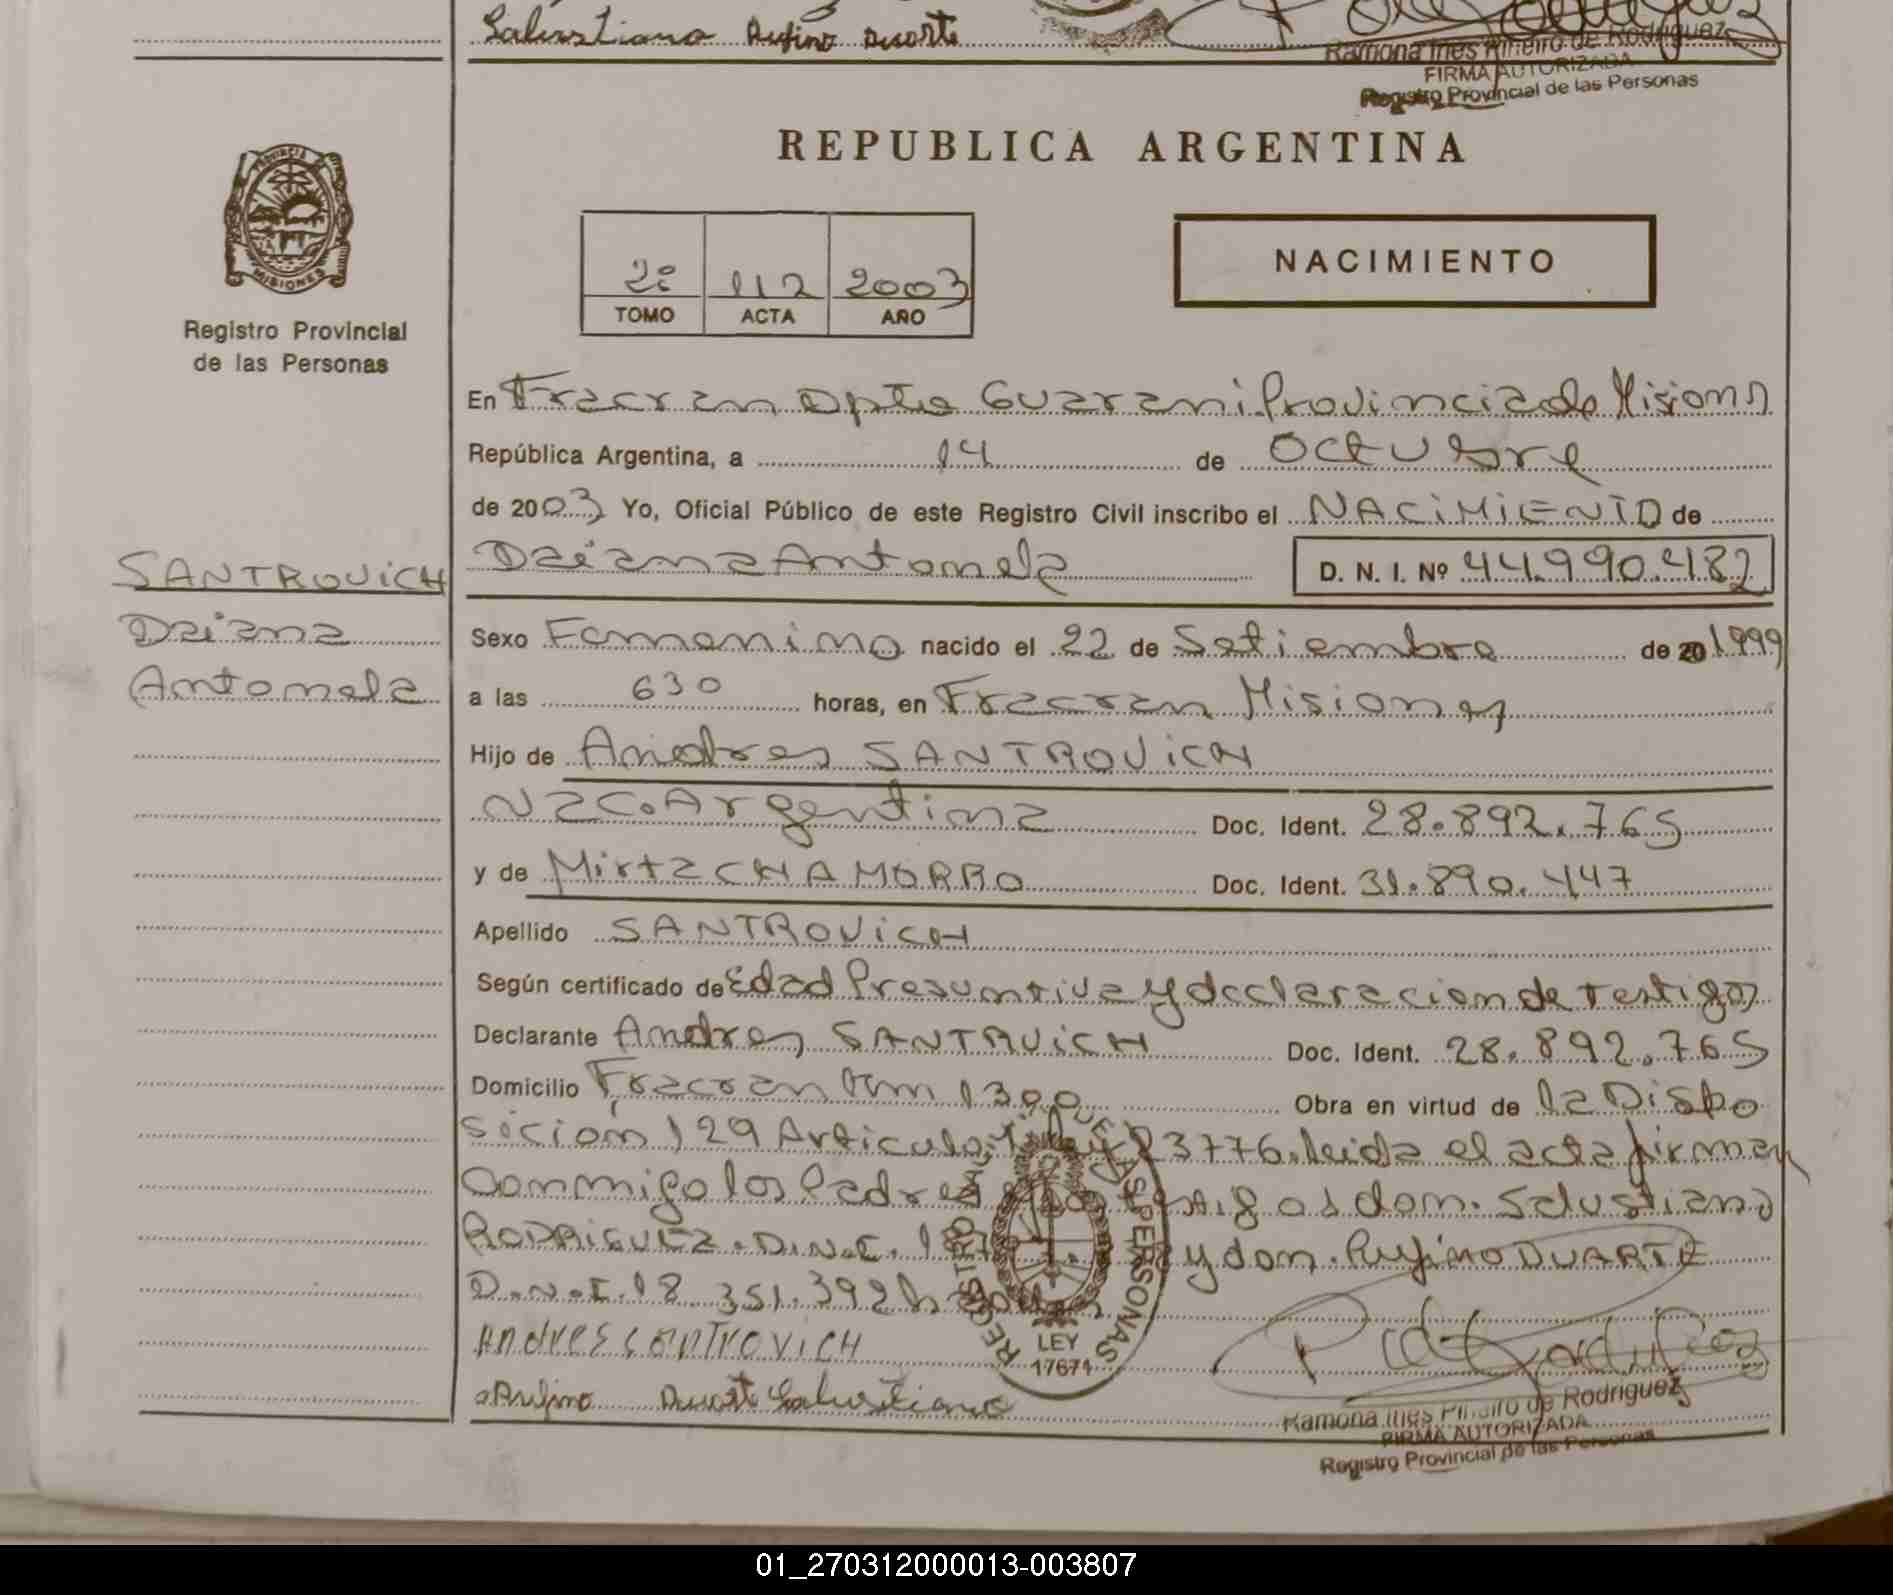 Salustiano Rufino Duarte
Ramona Ines Piñeiro de Rodriguez
FIRMA AUTORIZADA
Registro Provincial de las Personas
REPUBLICA ARGENTINA
PROVINCIA DE
MISIONES
Registro Provincial
de las Personas
2º 112 2003
TOMO ACTA AÑO
NACIMIENTO
En Fracran Dpto Guarani Provincia de Misiones
República Argentina, a 14 de Octubre
de 2003 Yo, Oficial Público de este Registro Civil inscribo el NACIMIENTO de
Daiana Antonela D. N. I. Nº 44.990.482
SANTROVICH
Daiana
Antonela
Sexo Femenino nacido el 22 de Setiembre de 20 1999
a las 630 horas, en Fracran Misiones
Hijo de Andres SANTROVICH
Nac. Argentina Doc. Ident. 28.892.765
y de Mirta CHAMORRO Doc. Ident. 31.890.447
Apellido SANTROVICH
Según certificado de Edad Presuntiva y declaracion de testigos
Declarante Andres SANTRVICH Doc. Ident. 28.892.765
Domicilio Fracran km 1300 Obra en virtud de la Dispo
sicion 129 Articulo 23776. Leida el acta firman
Conmigo los Padres testigos don. Salustiano
RODRIGUEZ. D.N.I. y don. Rufino DUARTE
D.N.I. 18 351.392
ANDRES SANTROVICH
Rufino Duarte Salustiano
REGISTRO DE LAS PERSONAS
LEY
17671
Ramona Ines Piñeiro de Rodriguez
FIRMA AUTORIZADA
Registro Provincial de las Personas
01_270312000013-003807